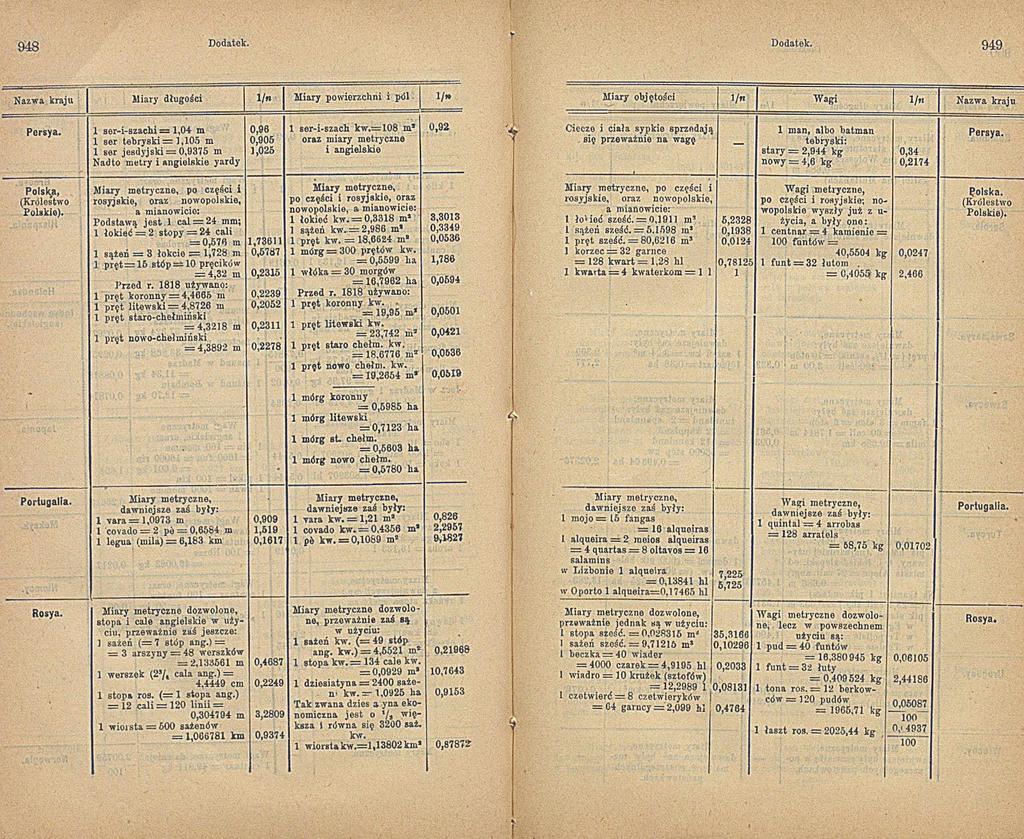 948
Dodatek.
Nazwa kraju
Miary długości
1/n
Miary powierzchni i pól
1/n
Persya.
1 ser-i-szachi = 1,04 m 0,96
1 ser tebryski = 1,105 m 0,905
1 ser jesdyjski = 0,9375 m 1,025
Nadto metry i angielskie yardy
1 ser-i-szach kw. = 108 m² 0,92
oraz miary metryczne
i angielskie
Polska,
(Królestwo
Polskie).
Miary metryczne, po części i
rosyjskie, oraz nowopolskie,
a mianowicie:
Podstawą jest 1 cal = 24 mm;
1 łokieć = 2 stopy = 24 cali
= 0,576 m 1,73611
1 sążeń = 3 łokcie = 1,728 m 0,5787
1 pręt = 15 stóp = 10 pręcików
= 4,32 m 0,2315
Przed r. 1818 używano:
1 pręt koronny = 4,4665 m 0,2239
1 pręt litewski = 4,8726 m 0,2052
1 pręt staro-chełmiński
= 4,3218 m 0,2311
1 pręt nowo-chełmiński
= 4,3892 m 0,2278
Miary metryczne,
po części i rosyjskie, oraz
nowopolskie, a mianowicie:
1 łokieć kw. = 0,3318 m² 3,3013
1 sążeń kw. = 2,986 m² 0,3349
1 pręt kw. = 18,6624 m² 0,0536
1 mórg = 300 prętów kw.
= 0,5599 ha 1,786
1 włóka = 30 morgów
= 16,7962 ha 0,0594
Przed r. 1818 używano:
1 pręt koronny kw.
= 19,95 m² 0,0501
1 pręt litewski kw.
= 23,742 m² 0,0421
1 pręt staro chełm. kw.
= 18,6776 m² 0,0536
1 pręt nowo chełm. kw.
= 19,2654 m² 0,0519
1 mórg koronny
= 0,5985 ha
1 mórg litewski
= 0,7123 ha
1 mórg st. chełm.
= 0,5603 ha
1 mórg nowo chełm.
= 0,5780 ha
Portugalia.
Miary metryczne,
dawniejsze zaś były:
1 vara = 1,0973 m 0,909
1 covado = 2 pè = 0,6584 m 1,519
1 legua (mila) = 6,183 km 0,1617
Miary metryczne,
dawniejsze zaś były:
1 vara kw. = 1,21 m² 0,826
1 covado kw. = 0,4356 m² 2,2957
1 pè kw. = 0,1089 m² 9,1827
Rosya.
Miary metryczne dozwolone,
stopa i cale angielskie w uży-
ciu, przeważnie zaś jeszcze:
1 sażeń (= 7 stóp ang.) =
= 3 arszyny = 48 werszków
= 2,133561 m 0,4687
1 werszek (2³/₄ cala ang.) =
4,4449 cm 0,2249
1 stopa ros. (= 1 stopa ang.)
= 12 cali = 120 linii =
0,304794 m 3,2809
1 wiorsta = 500 sażenów
= 1,066781 km 0,9374
Miary metryczne dozwolo-
ne, przeważnie zaś są
w użyciu:
1 sażeń kw. (= 49 stóp
ang. kw.) = 4,5521 m² 0,21968
1 stopa kw. = 134 cale kw.
= 0,0929 m² 10,7643
1 dziesiatyna = 2400 saże-
kw. = 1,0925 ha 0,9153
Tak zwana eko-
nomiczna jest o ¹/₃ wię-
ksza i równa się 3200 saż.
kw.
1 wiorsta kw. = 1,13802 km² 0,87872
Dodatek.
949
Miary objętości
1/n
Wagi
1/n
Nazwa kraju
Ciecze i ciała sypkie sprzedają
się przeważnie na wagę —
1 man, albo batman
tebryski:
stary = 2,944 kg 0,34
nowy = 4,6 kg 0,2174
Persya.
Miary metryczne, po części i
rosyjskie, oraz nowopolskie,
a mianowicie:
1 łokieć sześć. = 0,1911 m³ 5,2328
1 sążeń sześć. = 5,1598 m³ 0,1938
1 pręt sześć. = 80,6216 m³ 0,0124
1 korzec = 32 garnce
= 128 kwart = 1,28 hl 0,78125
1 kwarta = 4 kwaterkom = 1 l 1
Wagi metryczne,
po części i rosyjskie; no-
wopolskie wyszły już z u-
życia, a były one:
1 centnar = 4 kamienie =
100 funtów =
40,5504 kg 0,0247
1 funt = 32 łutom
= 0,4055 kg 2,466
Polska.
(Królestwo
Polskie).
Miary metryczne,
dawniejsze zaś były:
1 mojo = 15 fangas
= 16 alqueiras
1 alqueira = 2 meios alqueiras
= 4 quartas = 8 oitavos = 16
salamins
w Lizbonie 1 alqueira 7,225
= 0,13841 hl
w Oporto 1 alqueira = 0,17465 hl 5,725
Wagi metryczne,
dawniejsze zaś były:
1 quintal = 4 arrobas
= 128 arratels
= 58,75 kg 0,01702
Portugalia.
Miary metryczne dozwolone,
przeważnie jednak są w użyciu:
1 stopa sześć. = 0,028315 m³ 35,3166
1 sażeń sześć. = 9,71215 m³ 0,10296
1 beczka = 40 wiader
= 4000 czarek = 4,9195 hl 0,2033
1 wiadro = 10 krużek (sztofów)
= 12,2989 l 0,08131
1 czetwierć = 8 czetwieryków
= 64 garncy = 2,099 hl 0,4764
Wagi metryczne dozwolo-
ne, lecz w powszechnem
użyciu są:
1 pud = 40 funtów
= 16,380945 kg 0,06105
1 funt = 32 łuty
= 0,409524 kg 2,44186
1 tona ros. = 12 berkow-
ców = 120 pudów 0,05087
= 1965,71 kg 100
1 łaszt ros. = 2025,44 kg 0,04937
100
Rosya.